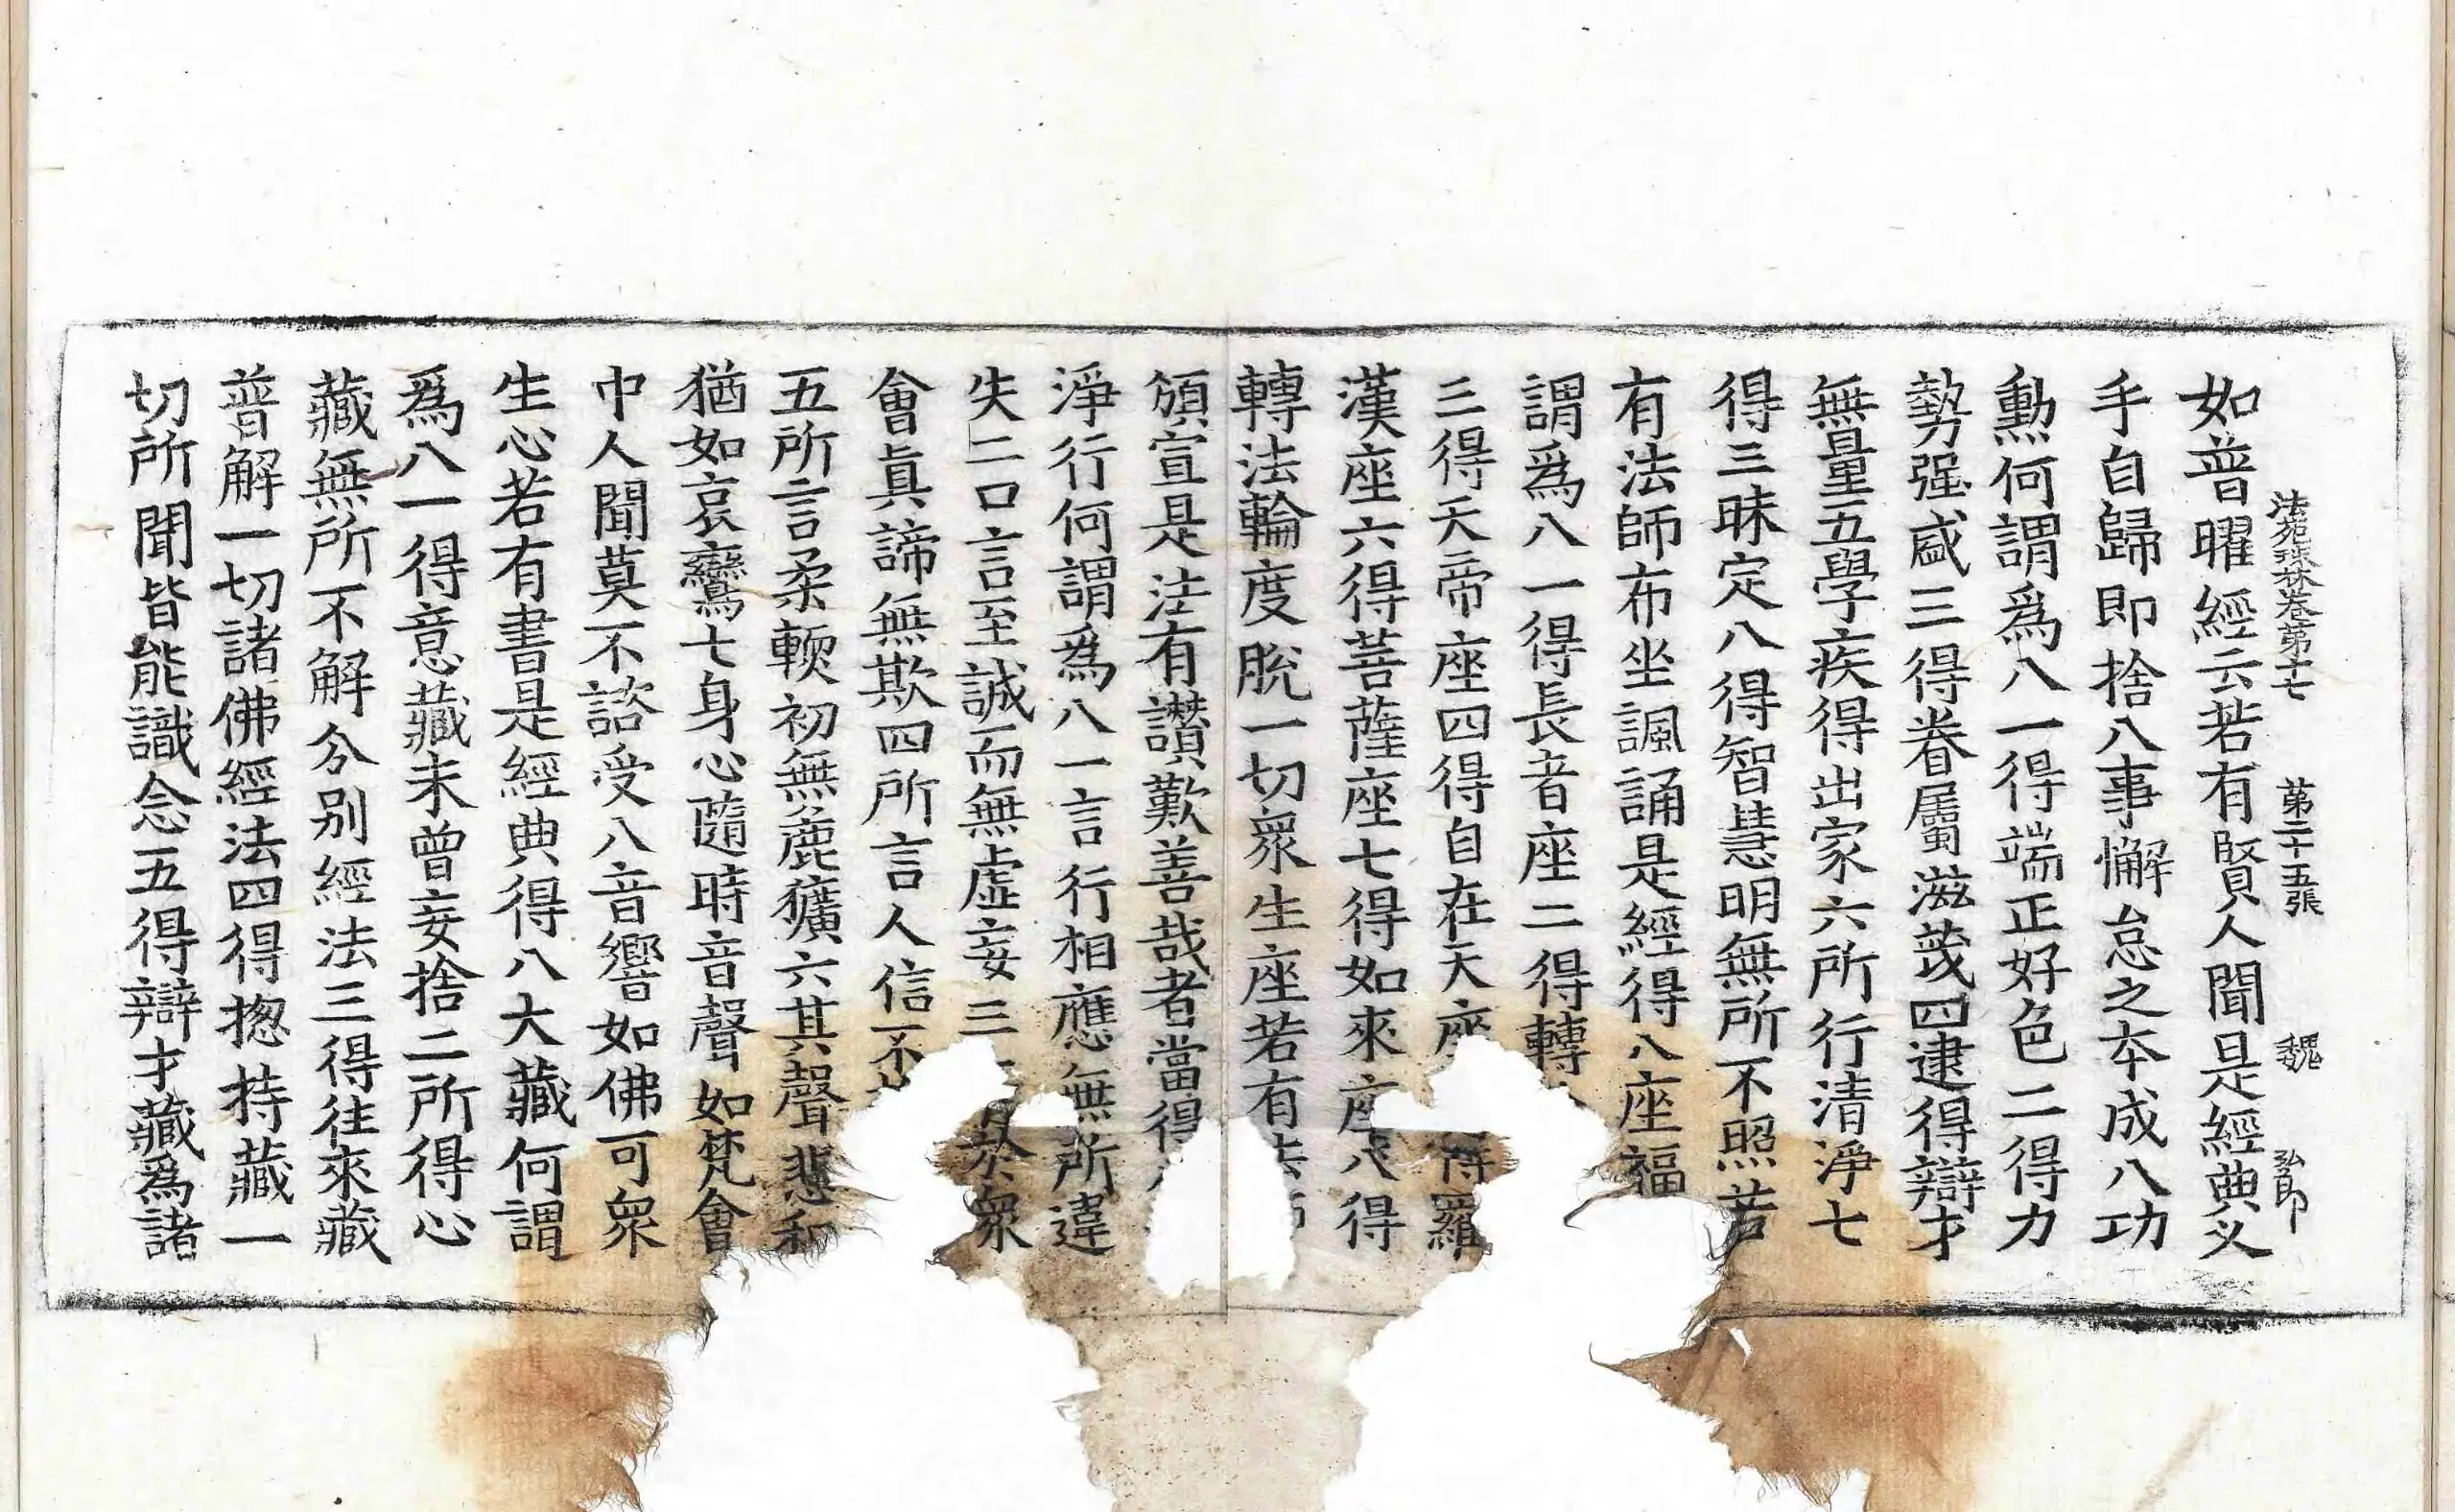 法苑珠林卷第十七 第二十五張 魏 弘印
如普曜經云若有賢人聞是經典义
手自歸即捨八事懈怠之本成八功
勳何謂爲八一得端正好色二得力
勢强盛三得眷屬滋茂四逮得辯才
無量五學疾得出家六所行清淨七
得三昧定八得智慧明無所不照若
有法師布坐諷誦是經得八座福
謂爲八一得長者座二得轉
三得天帝座四得自在天座得羅
漢座六得菩薩座七得如來座八得
轉法輪度脫一切衆生座若有法師
頒宣是法有讃歎善哉者當得
淨行何謂爲八一言行相應無所違
失二口言至誠而無虛妄三衆
會眞諦無欺四所言人信不
五所言柔輭初無麁獷六其聲悲和
猶如哀鸞七身心隨時音聲如梵會
中人聞莫不諮受八音響如佛可衆
生心若有書是經典得八大藏何謂
爲八一得意藏未曾妄捨二所得心
藏無所不解分別經法三得往來藏
普解一切諸佛經法四得揔持藏一
切所聞皆能識念五得辯才藏爲諸